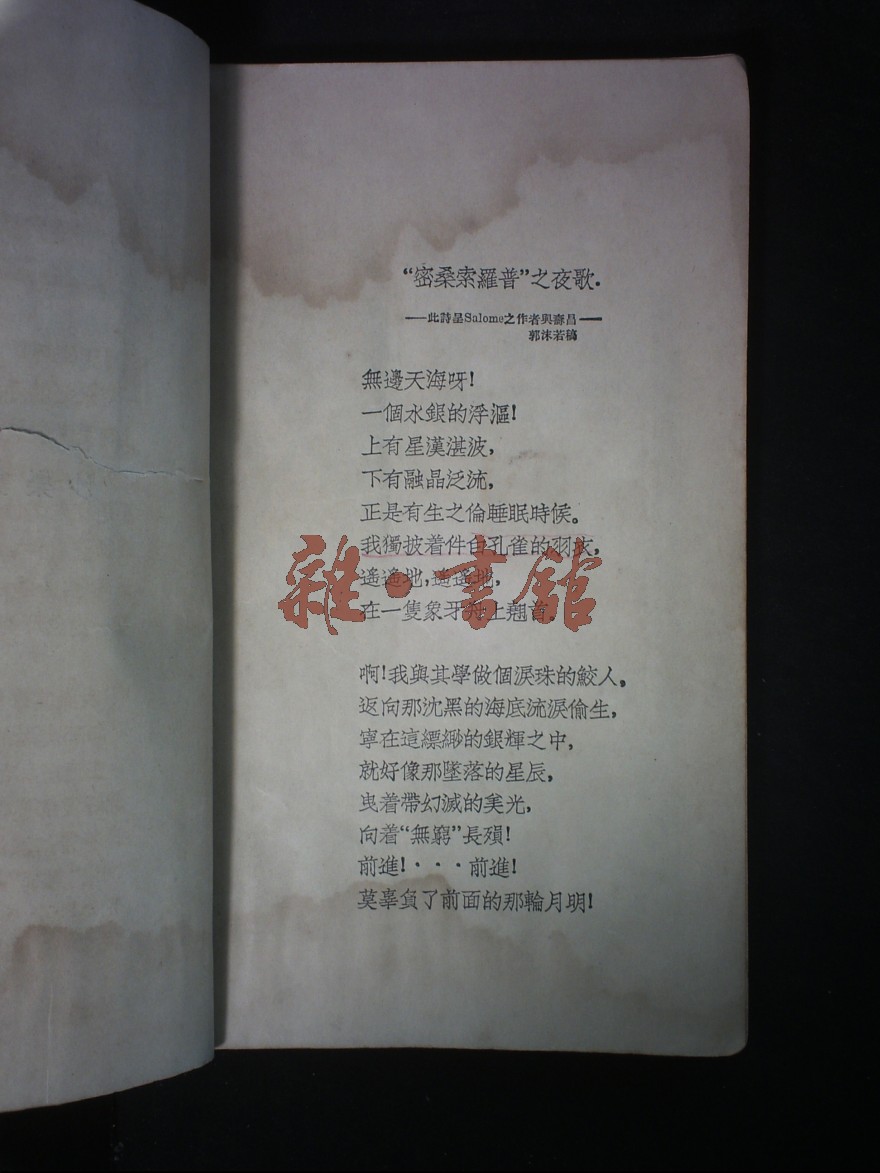 “密桑索羅普”之夜歌.
——此詩呈Salome之作者與壽昌——
郭沫若稿
無邊天海呀!
一個水銀的浮漚!
上有星漢湛波,
下有融晶泛流,
正是有生之倫睡眠時候。
我獨披着件白孔雀的羽衣,
遙遙地,遙遙地,
在一隻象牙舟上翹首.
啊!我與其學做個淚珠的鮫人,
返向那沈黑的海底流淚偷生,
寧在這縹緲的銀輝之中,
就好像那墜落的星辰,
曳着帶幻滅的美光,
向着“無窮”長殞!
前進!···前進!
莫辜負了前面的那輪月明!
雜·書館